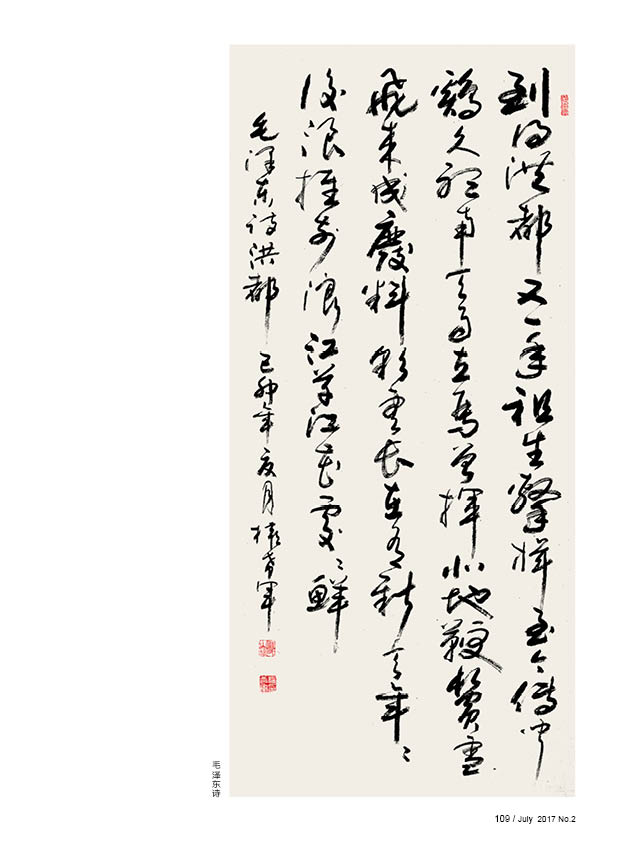 到得洪都又一年祖生擊楫至今傳闻
鷄久聽南天雨立馬曾揮北地鞭鬢雪
飛来成廢料彩雲長在有新天年々
後浪推前浪江草江花處々鮮
毛泽东诗洪都 己卯年 月 军
毛泽东诗
109 / July 2017 No.2